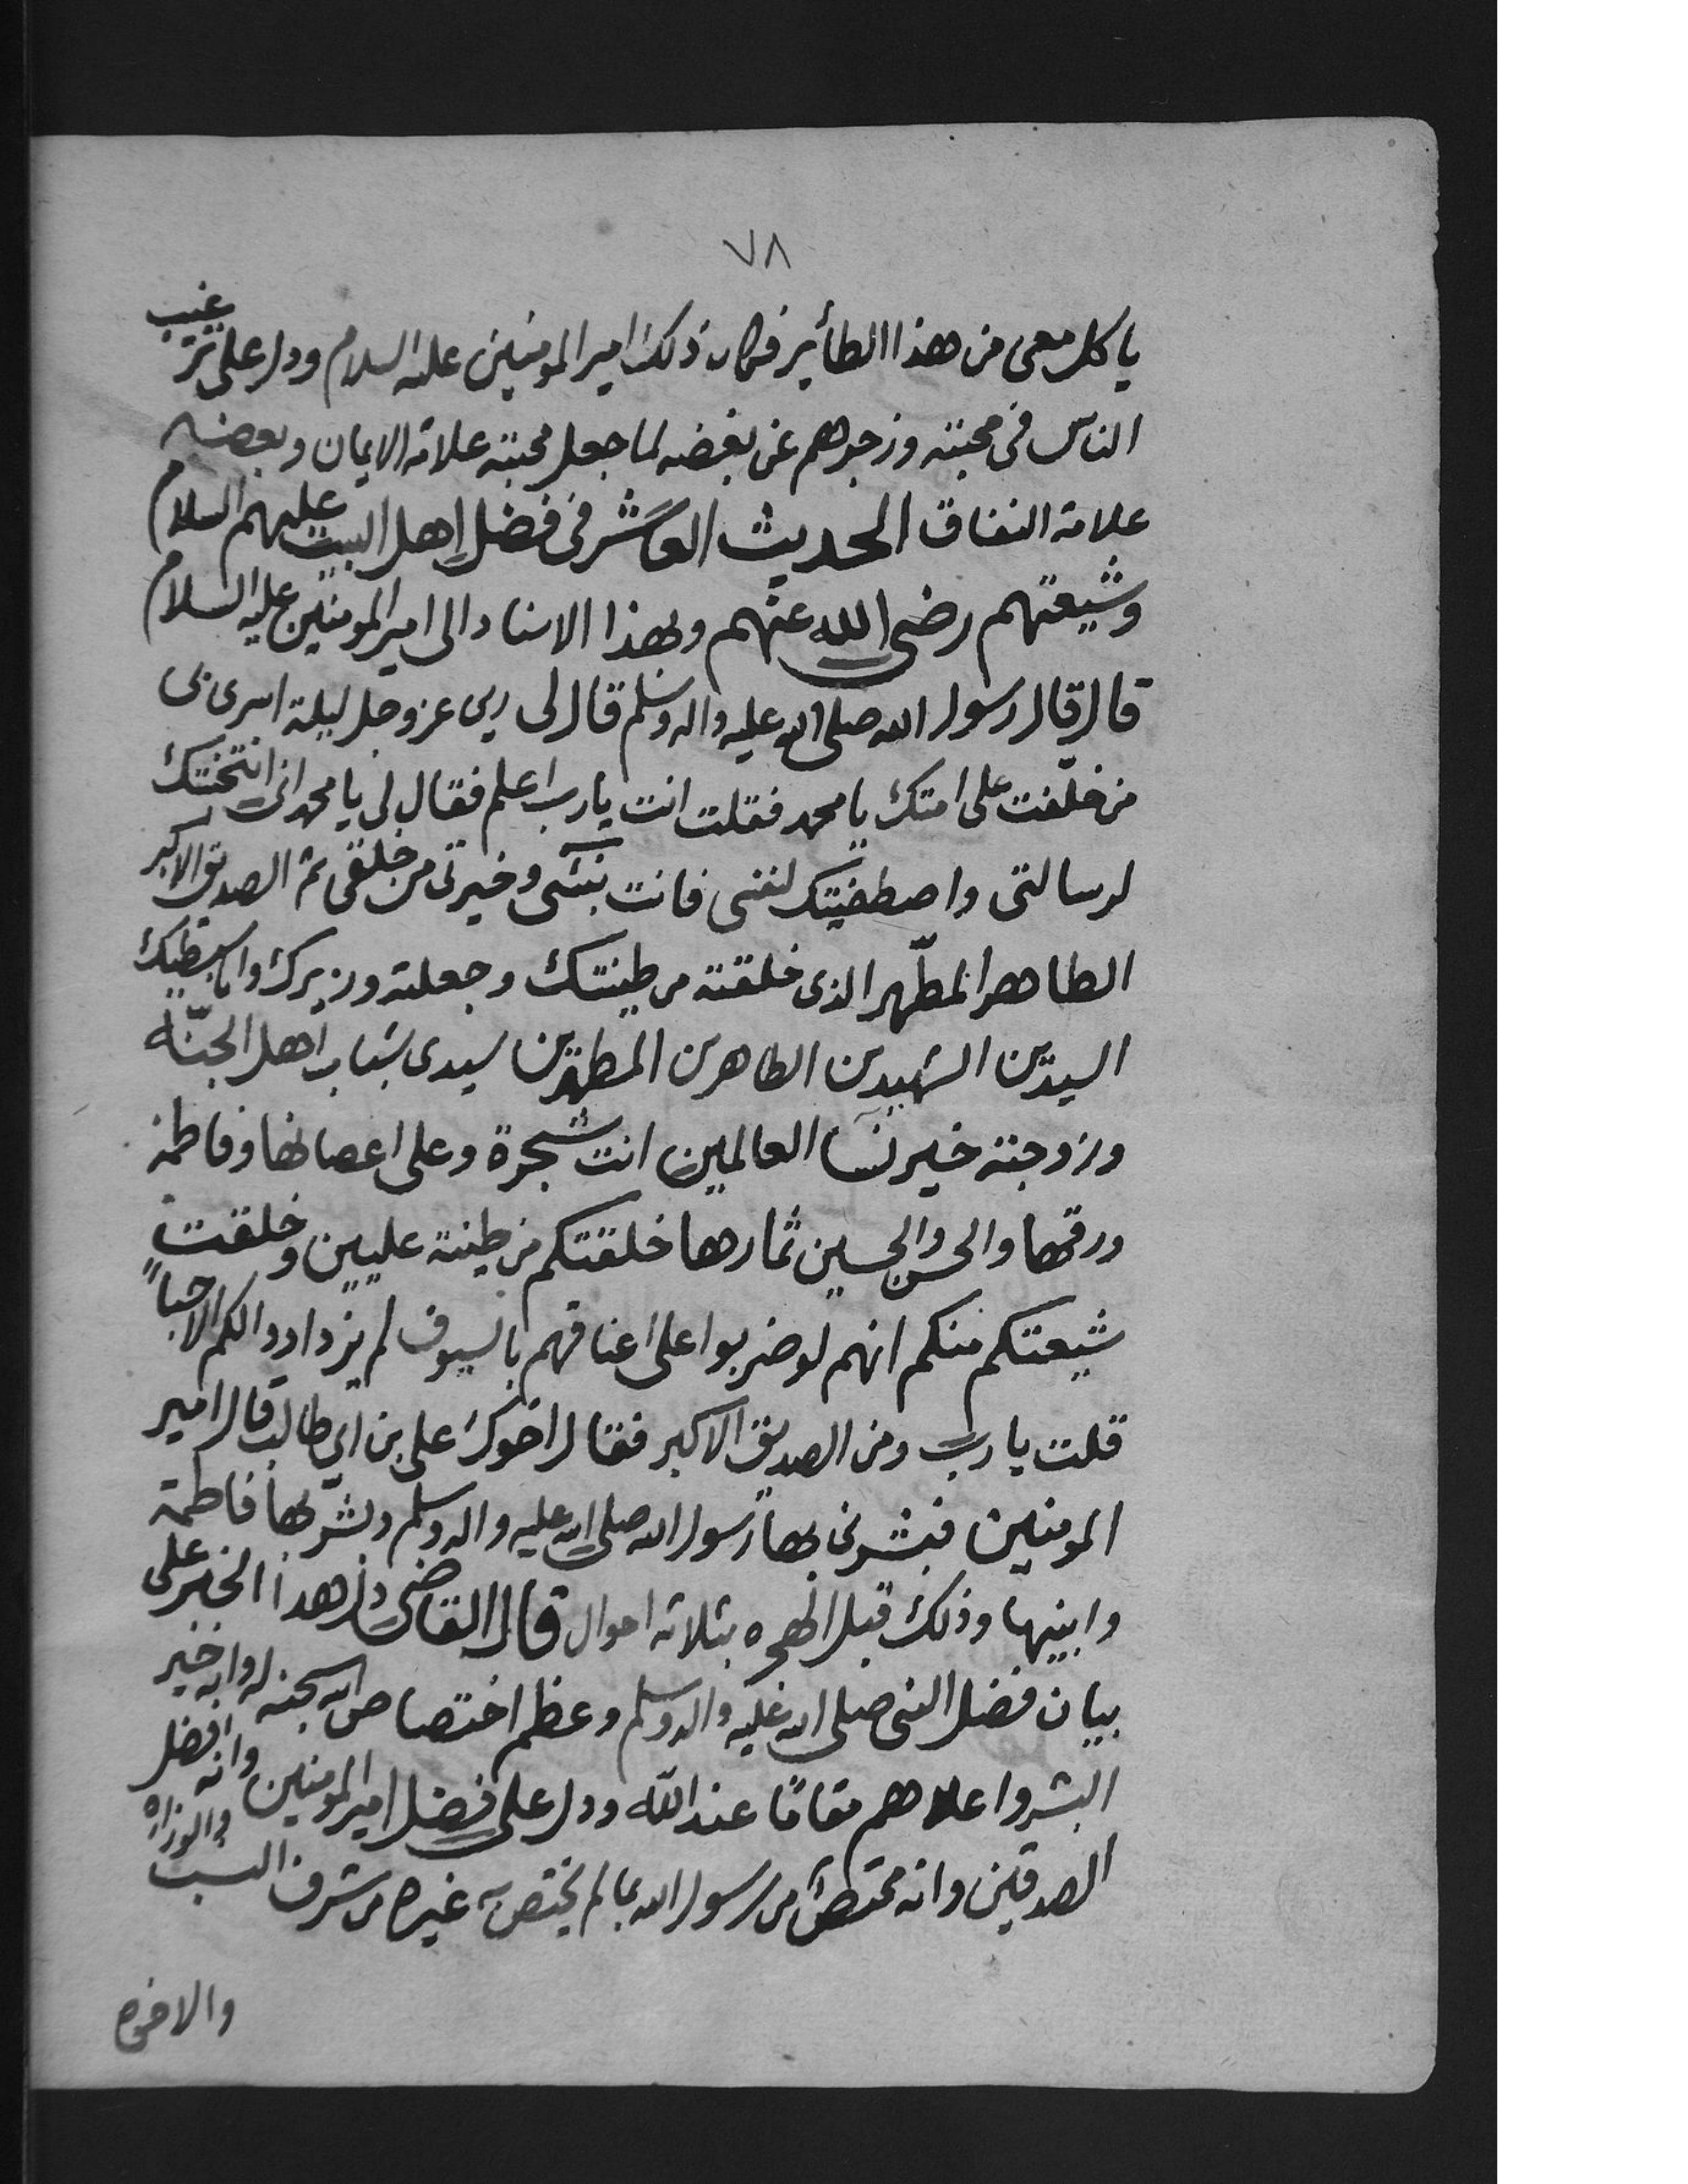 ٧٨
ياكل معى من هذا الطأير فكان ذلك امير المومنين عليه السلام ودل على ترغيب
الناس فى محبته وزجرهم عن بغضه لما جعل محبته علامة الايمان وبغضه
علامة النفاق الحديث العاشر فى فضل اهل البيت عليهم السلام
وشيعتهم رضى الله عنهم وبهذا الاسناد الى امير المومنين عليه السلام
قال قال رسول الله صلى الله عليه واله وسلم قال لى ربى عز وجل ليلة اسرى بى
من خلفت على امتك يا محمد فقلت انت يا رب اعلم فقال لى يا محمد انى انتخبتك
لرسالتى واصطفيتك لنفسى فانت نبيى وخيرتى من خلقى ثم الصديق الاكبر
الطاهر المطهر الذى خلقته من طينتك وجعلته وزيرك وابا سبطيك
السيدين الشهيدين الطاهرين المطهرين سيدى شباب اهل الجنّة
وزوجته خير نسآ العالمين انت شجرة وعلى اغصانها وفاطمة
ورقها والحسن والحسين ثمارها خلقتكم من طينة عليين وخلقت
شيعتكم منكم انهم لو ضربوا على اعناقهم بالسيوف لم يزدادوا لكم الا حباً
قلت يا رب ومن الصديق الاكبر فقال اخوك على بن ابي طالب قال امير
المومنين فبشرنى بها رسول الله صلى الله عليه واله وسلم وبشر بها فاطمة
وابنيها وذلك قبل الهجره بثلاثه احوال قال القاضى دل هذا الخبر على
بيان فضل النبى صلى الله عليه واله وسلم وعظم اختصاص الله سبحنه له وانه خير
البشر واعلاهم مقامًا عند الله ودل على فضل امير المومنين وانه افضل
الصديقين وانه مختص من رسول الله بما لم يختص به غيره من شرف النسب والوزاره
والاخوه